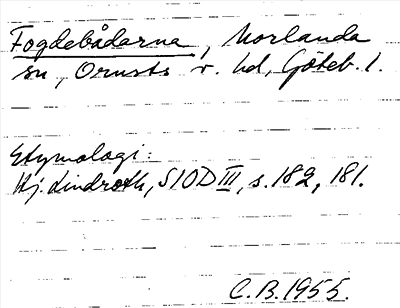 Fogdebådarna, Morlanda
sn, Orusts v. hd, Göteb. l.
Etymologi:
Hj. Lindroth, SIOD III, s. 182, 181.
C.B. 1955